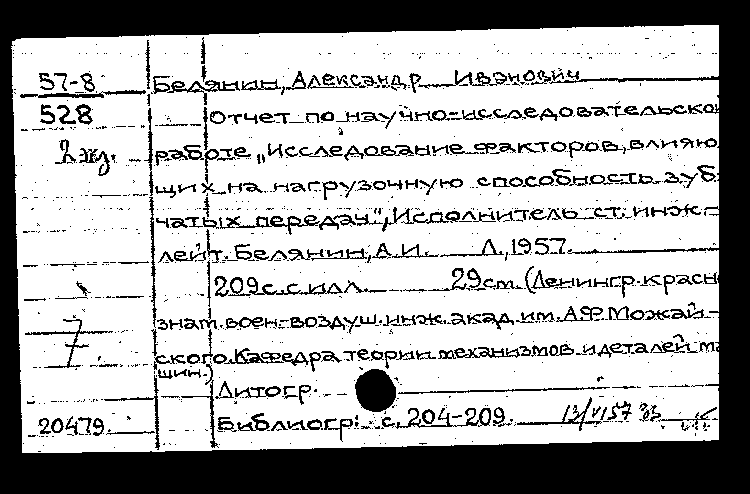 57-8 Белянин, Александр Иванович
528 Отчет по научно-исследовательской
2 экз. работе „Исследование факторов, влияю
щих на нагрузочную способность зуб-
чатых передач", Исполнитель ст. инж.-
лейт. Белянин, А.И. Л., 1957.
209 с. с илл. 29 см. (Ленингр. красно
знам. воен.-воздуш. инж. акад. им. А.Ф. Можай-
7. ского. Кафедра теории механизмов и деталей ма
шин.)
Литогр.
20479. Библиогр: с. 204-209. 13/VI 57